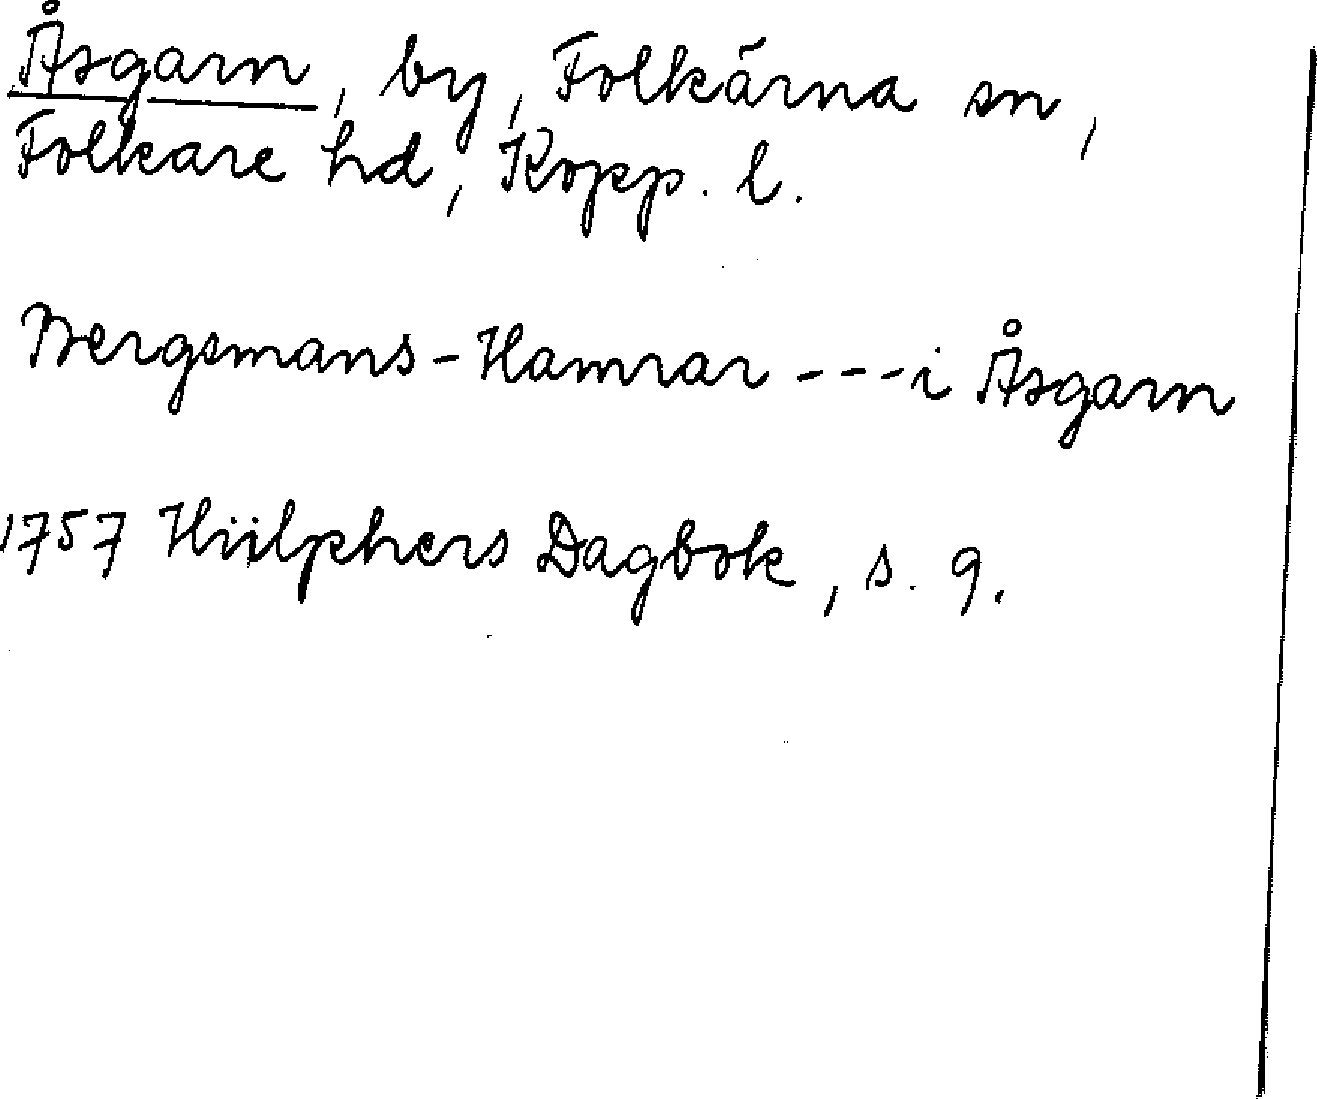 Åsgarn, by, Folkärna sn,
Folkare hd, Kopp. l.
Bergsmans-Hamrar --- i Åsgarn
1757 Hülphers Dagbok, s. 9.